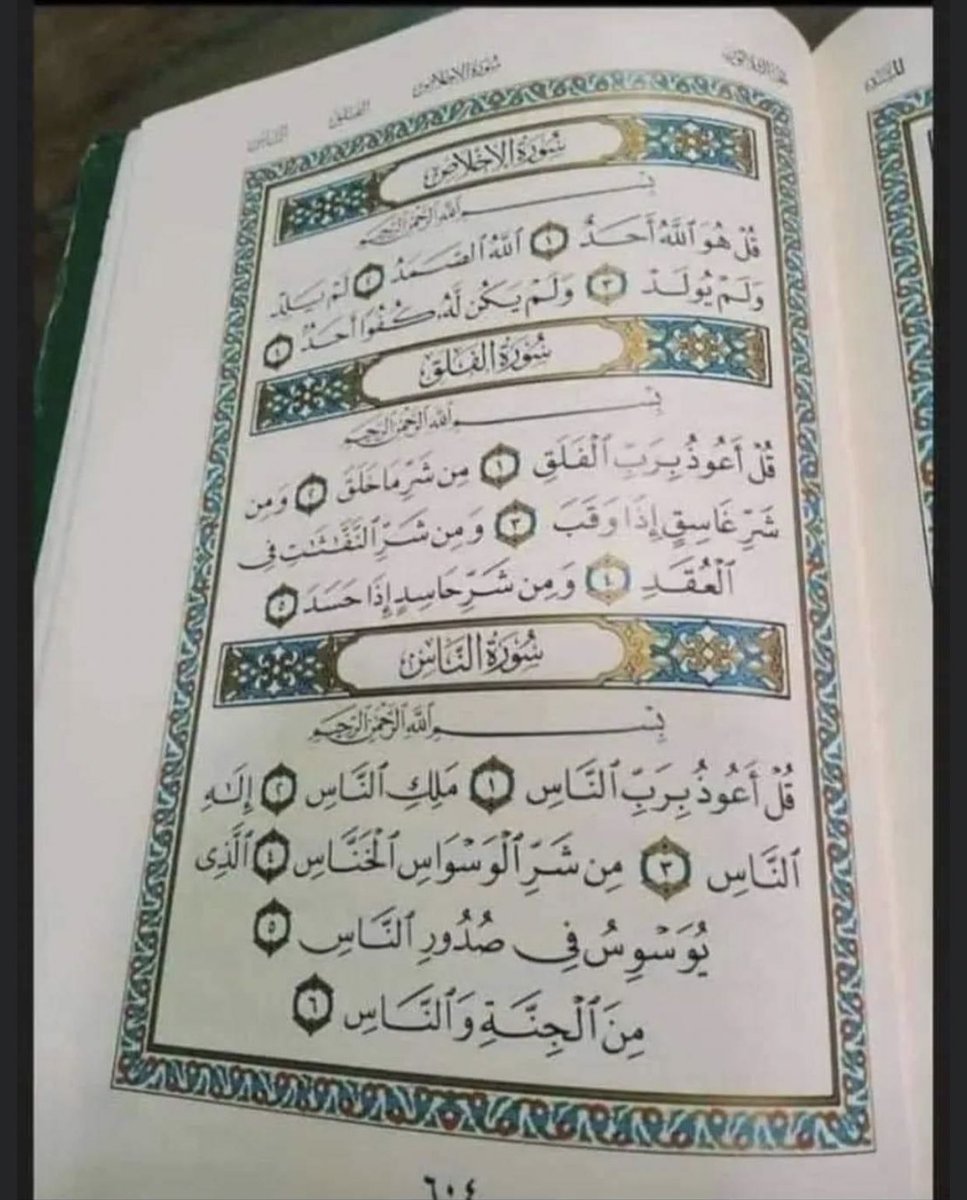 سُورَةُ الإِخْلَاصِ الفَلَق النَّاس
سُورَةُ الإِخْلَاصِ
بِسْمِ ٱللَّهِ ٱلرَّحْمَٰنِ ٱلرَّحِيمِ
قُلْ هُوَ ٱللَّهُ أَحَدٌ ١ ٱللَّهُ ٱلصَّمَدُ ٢ لَمْ يَلِدْ
وَلَمْ يُولَدْ ٣ وَلَمْ يَكُن لَّهُۥ كُفُوًا أَحَدٌۢ ٤
سُورَةُ الفَلَقِ
بِسْمِ ٱللَّهِ ٱلرَّحْمَٰنِ ٱلرَّحِيمِ
قُلْ أَعُوذُ بِرَبِّ ٱلْفَلَقِ ١ مِن شَرِّ مَا خَلَقَ ٢ وَمِن
شَرِّ غَاسِقٍ إِذَا وَقَبَ ٣ وَمِن شَرِّ ٱلنَّفَّٰثَٰتِ فِى
ٱلْعُقَدِ ٤ وَمِن شَرِّ حَاسِدٍ إِذَا حَسَدَ ٥
سُورَةُ النَّاسِ
بِسْمِ ٱللَّهِ ٱلرَّحْمَٰنِ ٱلرَّحِيمِ
قُلْ أَعُوذُ بِرَبِّ ٱلنَّاسِ ١ مَلِكِ ٱلنَّاسِ ٢ إِلَٰهِ
ٱلنَّاسِ ٣ مِن شَرِّ ٱلْوَسْوَاسِ ٱلْخَنَّاسِ ٤ ٱلَّذِى
يُوَسْوِسُ فِى صُدُورِ ٱلنَّاسِ ٥
مِنَ ٱلْجِنَّةِ وَٱلنَّاسِ ٦
٦٠٤